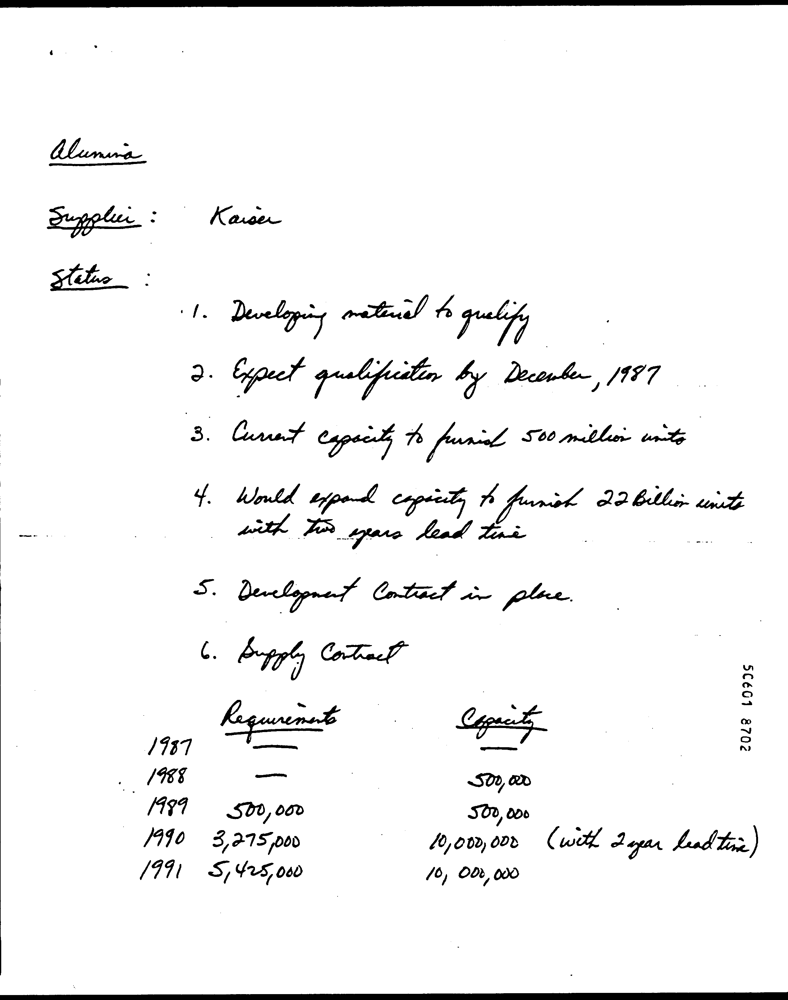 Alumina
Supplier : Kaiser
Status :
1. Developing material to qualify
2. Expect qualification by December, 1987
3. Current capacity to furnish 500 million units
4. Would expand capacity to furnish 22 Billion units
with two years lead time
5. Development Contract in place.
6. Supply Contract
Requirements Capacity
1987 — —
1988 — 500,000
1989 500,000 500,000
1990 3,275,000 10,000,000 (with 2 year lead time)
1991 5,425,000 10,000,000
50601 8702